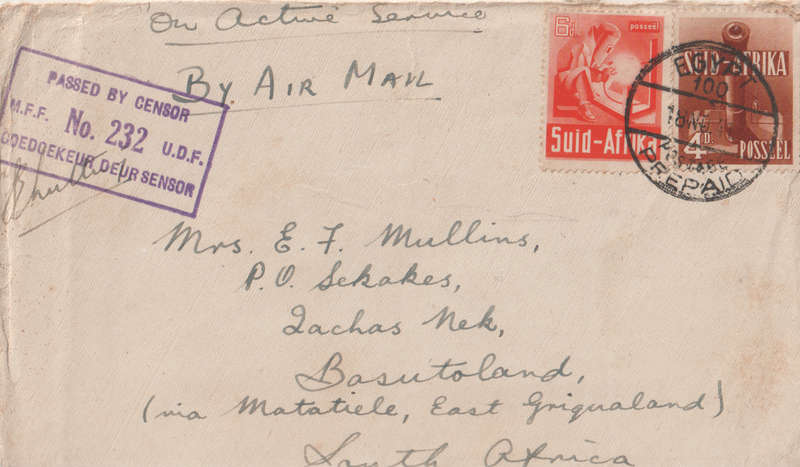 On Active Service
By Air Mail
PASSED BY CENSOR
M.F.F. No. 232 U.D.F.
GOEDGEKEUR DEUR SENSOR
Mullins
6d. posseël
Suid-Afrika
SUID-AFRIKA
4D. POSSEËL
EGYPT
100
PREPAID
Mrs. E. F. Mullins,
P.O. Sekakes,
Qachas Nek,
Basutoland,
(via Matatiele, East Griqualand)
South Africa